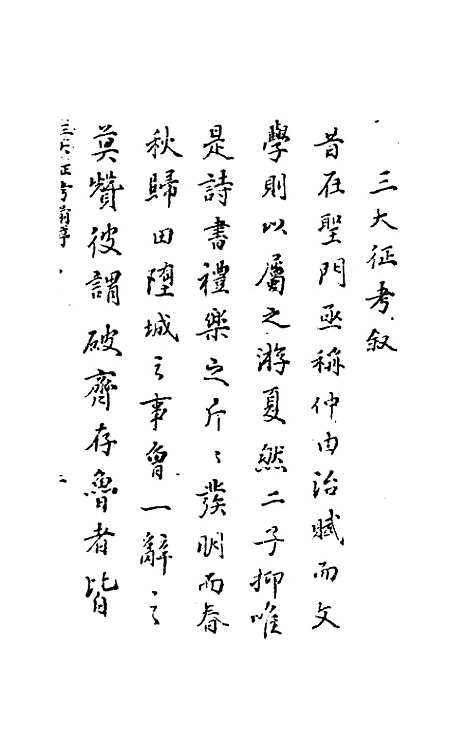 三大征考敘
昔在聖門亟稱仲由治賦而文
學則以屬之游夏然二子抑唯
是詩書禮樂之斤〻發明而春
秋歸田墮城之事曾一辭之
莫贊彼謂破齊存魯者皆
三大征考前序 一